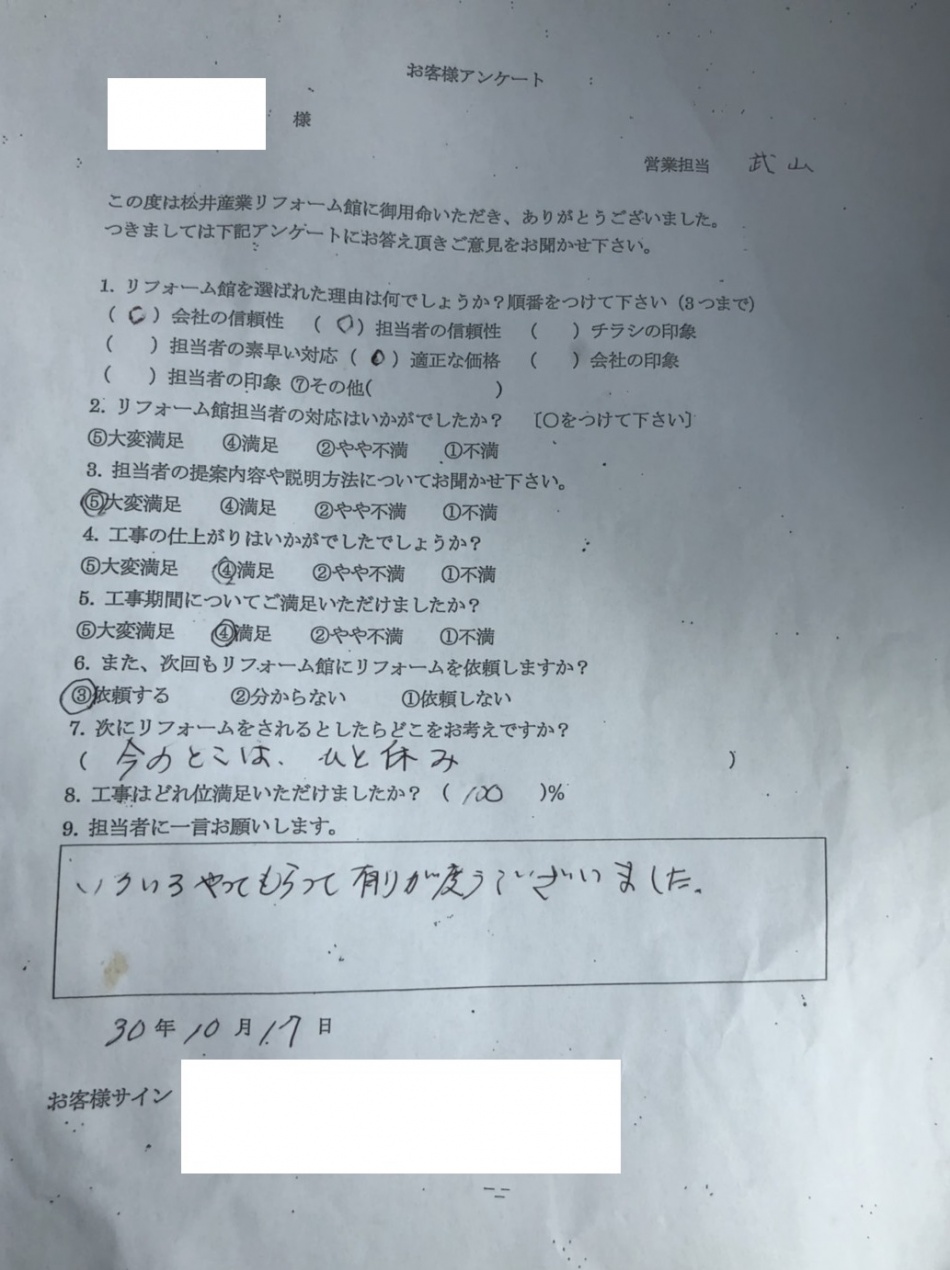 お客様アンケート
様
営業担当 武山
この度は松井産業リフォーム館に御用命いただき、ありがとうございました。
つきましては下記アンケートにお答え頂きご意見をお聞かせ下さい。
1. リフォーム館を選ばれた理由は何でしょうか？順番をつけて下さい（3つまで）
（ ○ ）会社の信頼性 （ ○ ）担当者の信頼性 （ ）チラシの印象
（ ）担当者の素早い対応（ ○ ）適正な価格 （ ）会社の印象
（ ）担当者の印象 ⑦その他( )
2. リフォーム館担当者の対応はいかがでしたか？ 〔〇をつけて下さい〕
⑤大変満足 ④満足 ②やや不満 ①不満
3. 担当者の提案内容や説明方法についてお聞かせ下さい。
⑤大変満足 ④満足 ②やや不満 ①不満
4. 工事の仕上がりはいかがでしたでしょうか？
⑤大変満足 ④満足 ②やや不満 ①不満
5. 工事期間についてご満足いただけましたか？
⑤大変満足 ④満足 ②やや不満 ①不満
6. また、次回もリフォーム館にリフォームを依頼しますか？
③依頼する ②分からない ①依頼しない
7. 次にリフォームをされるとしたらどこをお考えですか？
（ 今のとこは、ひと休み ）
8. 工事はどれ位満足いただけましたか？（ 100 ）%
9. 担当者に一言お願いします。
いろいろやってもらって有りが度うございました。
30年10月17日
お客様サイン